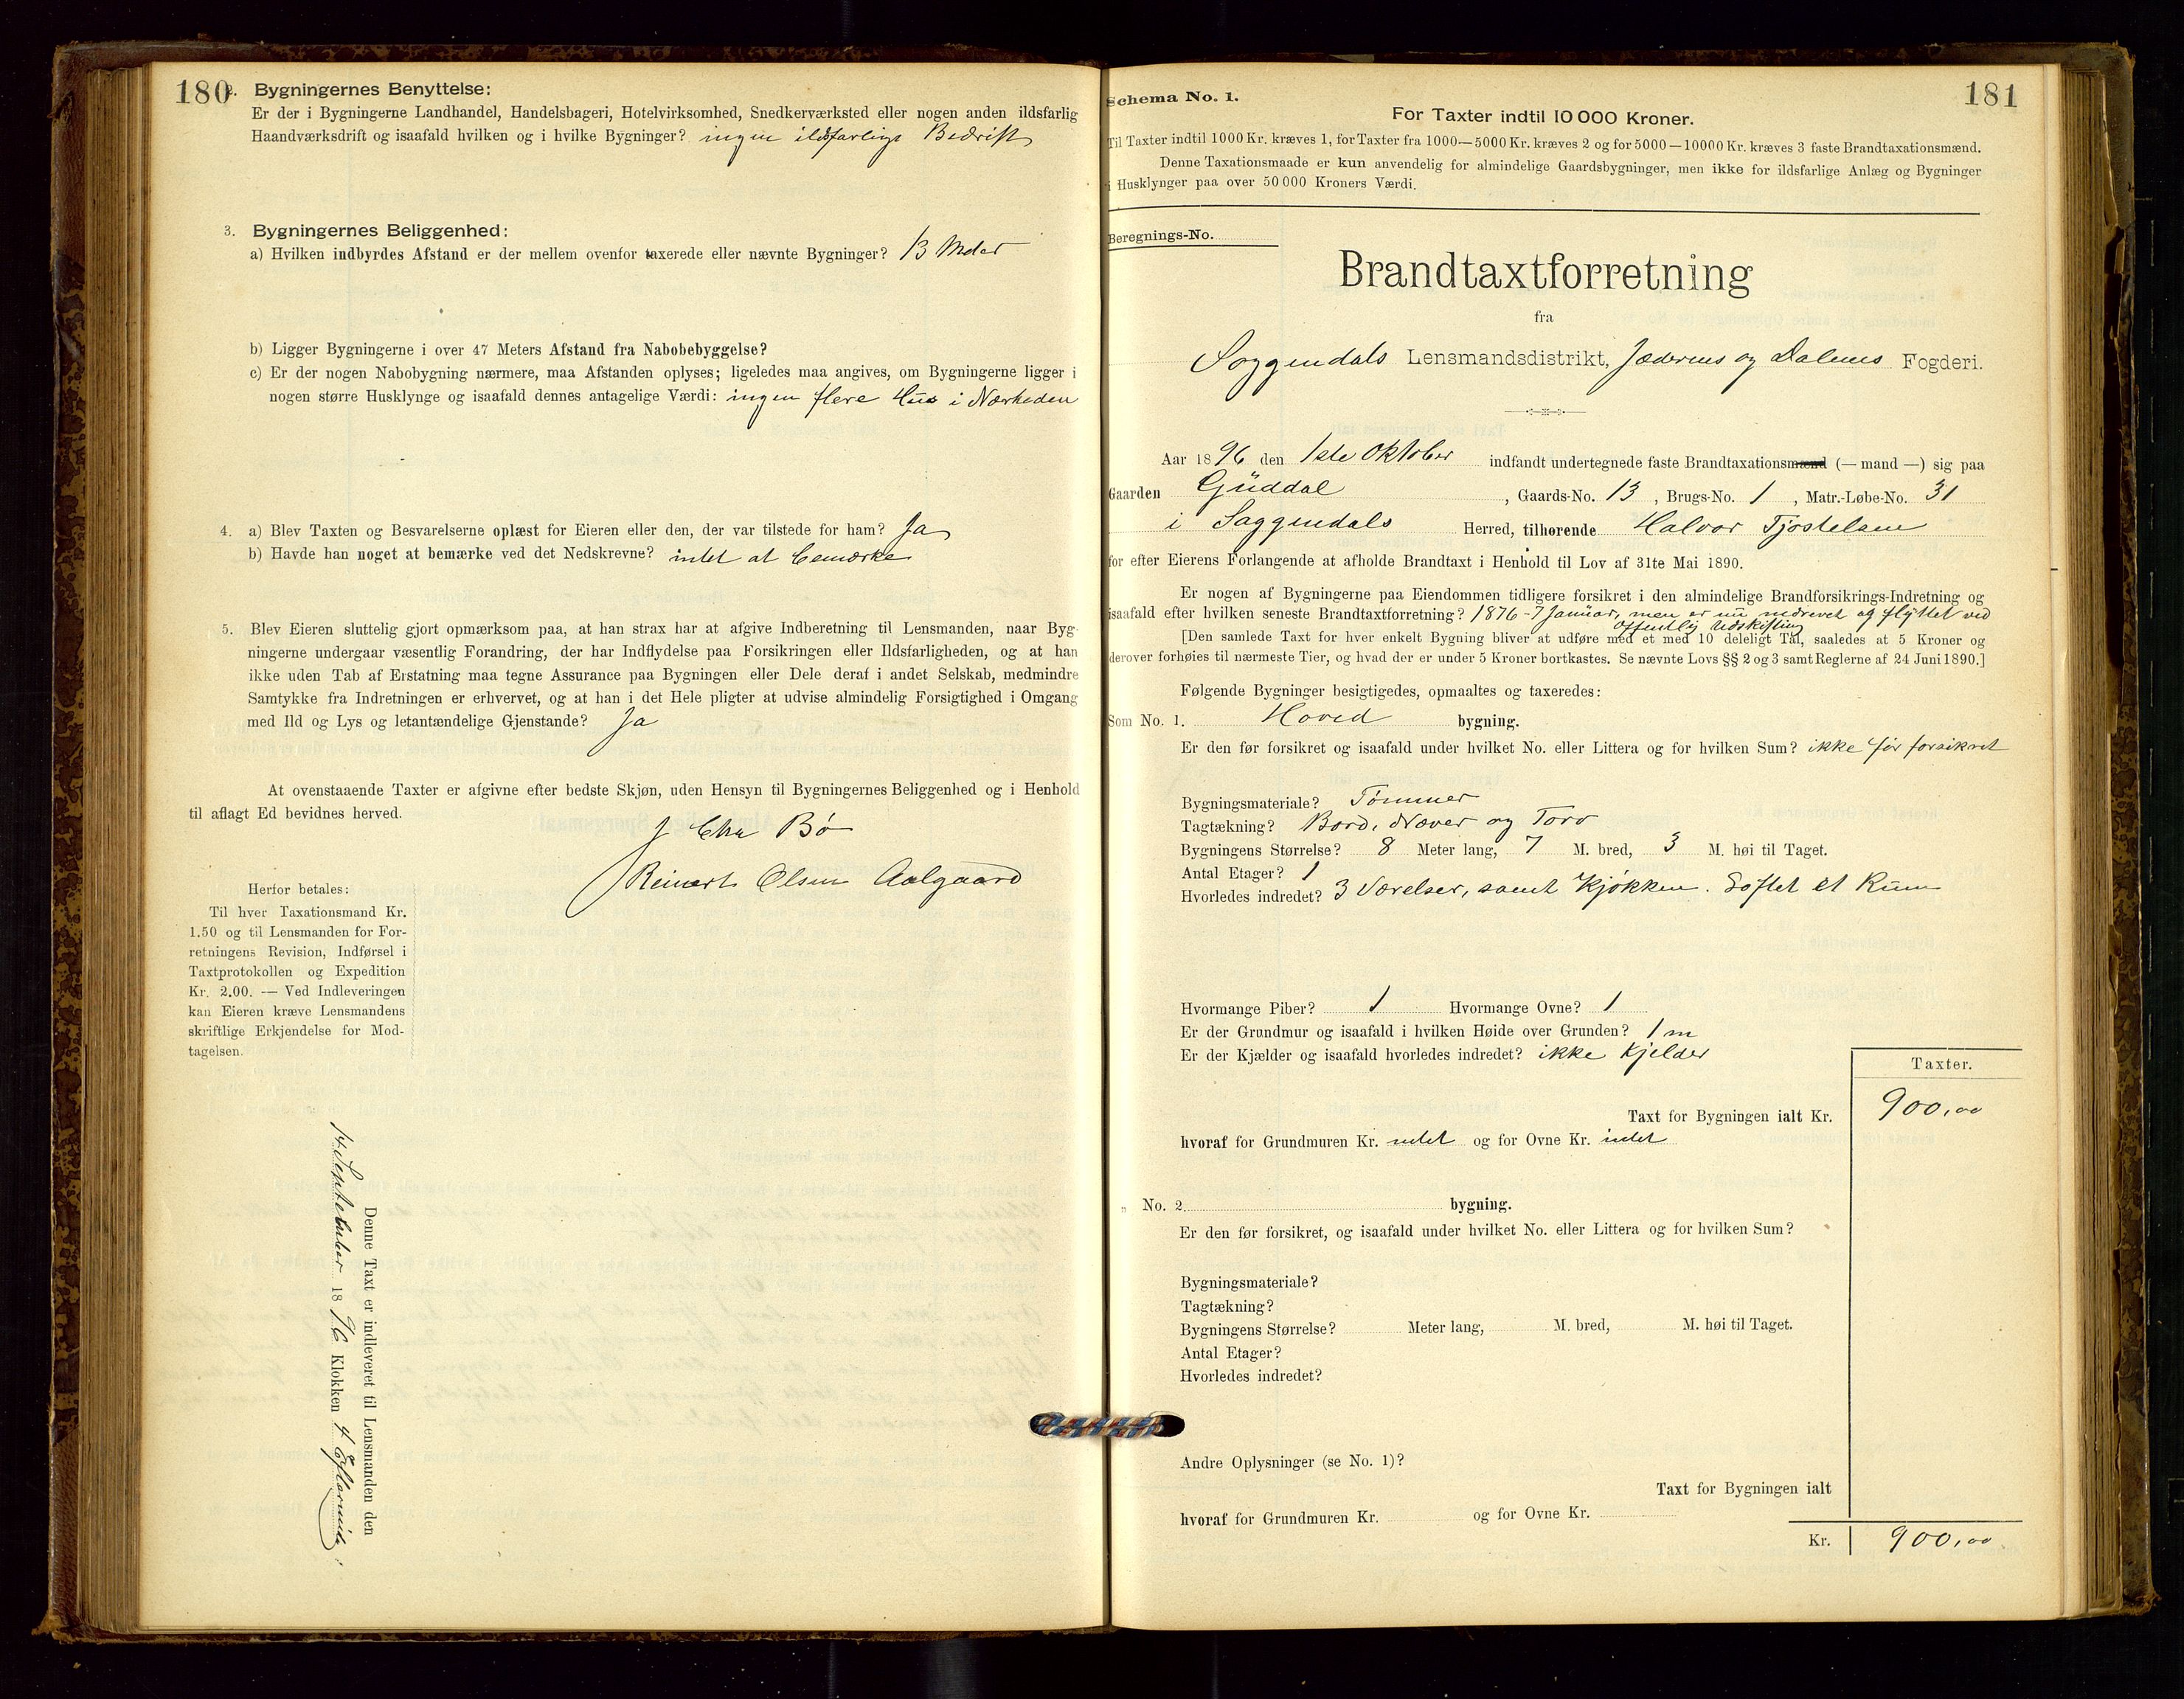 180
2. Bygningernes Benyttelse:
Er der i Bygningerne Landhandel, Handelsbageri, Hotelvirksomhed, Snedkerværksted eller nogen anden ildsfarlig
Haandværksdrift og isaafald hvilken og i hvilke Bygninger? ingen ildsfarlige Bedrift
3. Bygningernes Beliggenhed:
a) Hvilken indbyrdes Afstand er der mellem ovenfor taxerede eller nævnte Bygninger? 13 Meter
b) Ligger Bygningerne i over 47 Meters Afstand fra Nabobebyggelse?
c) Er der nogen Nabobygning nærmere, maa Afstanden oplyses; ligeledes maa angives, om Bygningerne ligger i
nogen større Husklynge og isaafald dennes antagelige Værdi: ingen flere Hus i Nærheden
4. a) Blev Taxten og Besvarelserne oplæst for Eieren eller den, der var tilstede for ham? Ja
b) Havde han noget at bemærke ved det Nedskrevne? intet at bemærke
5. Blev Eieren sluttelig gjort opmærksom paa, at han strax har at afgive Indberetning til Lensmanden, naar Byg-
ningerne undergaar væsentlig Forandring, der har Indflydelse paa Forsikringen eller Ildsfarligheden, og at han
ikke uden Tab af Erstatning maa tegne Assurance paa Bygningen eller Dele deraf i andet Selskab, medmindre
Samtykke fra Indretningen er erhvervet, og at han i det Hele pligter at udvise almindelig Forsigtighed i Omgang
med Ild og Lys og letantændelige Gjenstande? Ja
At ovenstaaende Taxter er afgivne efter bedste Skjøn, uden Hensyn til Bygningernes Beliggenhed og i Henhold
til aflagt Ed bevidnes herved.
J Chr Bø
Reinert Olsen Aalgaard
Herfor betales:
Til hver Taxationsmand Kr.
1.50 og til Lensmanden for For-
retningens Revision, Indførsel i
Taxtprotokollen og Expedition
Kr. 2.00. — Ved Indleveringen
kan Eieren kræve Lensmandens
skriftlige Erkjendelse for Mod-
tagelsen.
Denne Taxt er indleveret til Lensmanden den
14 September 1896 Klokken 4 Eftermidg.
181
Schema No. 1.
For Taxter indtil 10 000 Kroner.
Til Taxter indtil 1000 Kr. kræves 1, for Taxter fra 1000—5000 Kr. kræves 2 og for 5000—10000 Kr. kræves 3 faste Brandtaxationsmænd.
Denne Taxationsmaade er kun anvendelig for almindelige Gaardsbygninger, men ikke for ildsfarlige Anlæg og Bygninger
i Husklynger paa over 50 000 Kroners Værdi.
Beregnings-No.
Brandtaxtforretning
fra
Soggendals Lensmandsdistrikt, Jæderens og Dalenes Fogderi.
Aar 1896 den 1ste Oktober indfandt undertegnede faste Brandtaxationsmænd (— mand —) sig paa
Gaarden Guddal, Gaards-No. 13, Brugs-No. 1, Matr.-Løbe-No. 31
i Soggendals Herred, tilhørende Halvor Tjostelsen
for efter Eierens Forlangende at afholde Brandtaxt i Henhold til Lov af 31te Mai 1890.
Er nogen af Bygningerne paa Eiendommen tidligere forsikret i den almindelige Brandforsikrings-Indretning og
isaafald efter hvilken seneste Brandtaxtforretning? 1876 - 7 Januar, men er nu nedrevet og flyttet ved
offentlig Udskifting
[Den samlede Taxt for hver enkelt Bygning bliver at udføre med et med 10 deleligt Tal, saaledes at 5 Kroner og
derover forhøies til nærmeste Tier, og hvad der er under 5 Kroner bortkastes. Se nævnte Lovs §§ 2 og 3 samt Reglerne af 24 Juni 1890.]
Følgende Bygninger besigtigedes, opmaaltes og taxeredes:
Som No. 1. Hoved bygning.
Er den før forsikret og isaafald under hvilket No. eller Littera og for hvilken Sum? ikke før forsikret
Bygningsmateriale? Tømmer
Tagtækning? Bord, Næver og Torv
Bygningens Størrelse? 8 Meter lang, 7 M. bred, 3 M. høi til Taget.
Antal Etager? 1
Hvorledes indredet? 3 Værelser, samt Kjøkken. Loftet et Rum
Hvormange Piber? 1 Hvormange Ovne? 1
Er der Grundmur og isaafald i hvilken Høide over Grunden? 1 m
Er der Kjælder og isaafald hvorledes indredet? ikke Kjelder
Taxter.
Taxt for Bygningen ialt Kr. 900,00
hvoraf for Grundmuren Kr. intet og for Ovne Kr. intet
„ No. 2. bygning.
Er den før forsikret, og isaafald under hvilket No. eller Littera og for hvilken Sum?
Bygningsmateriale?
Tagtækning?
Bygningens Størrelse? Meter lang, M. bred, M. høi til Taget.
Antal Etager?
Hvorledes indredet?
Andre Oplysninger (se No. 1)?
Taxt for Bygningen ialt
hvoraf for Grundmuren Kr. og for Ovne Kr.
Kr. 900,00